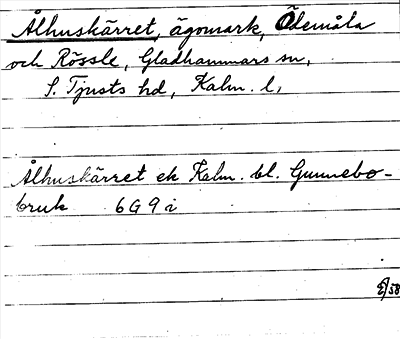 Ålhuskärret, ägomark, Ödemåla
och Rössle, Gladhammars sn,
S. Tjusts hd, Kalm. l,
Ålhuskärret ek Kalm. bl. Gunnebo-
bruk 6G9i
58